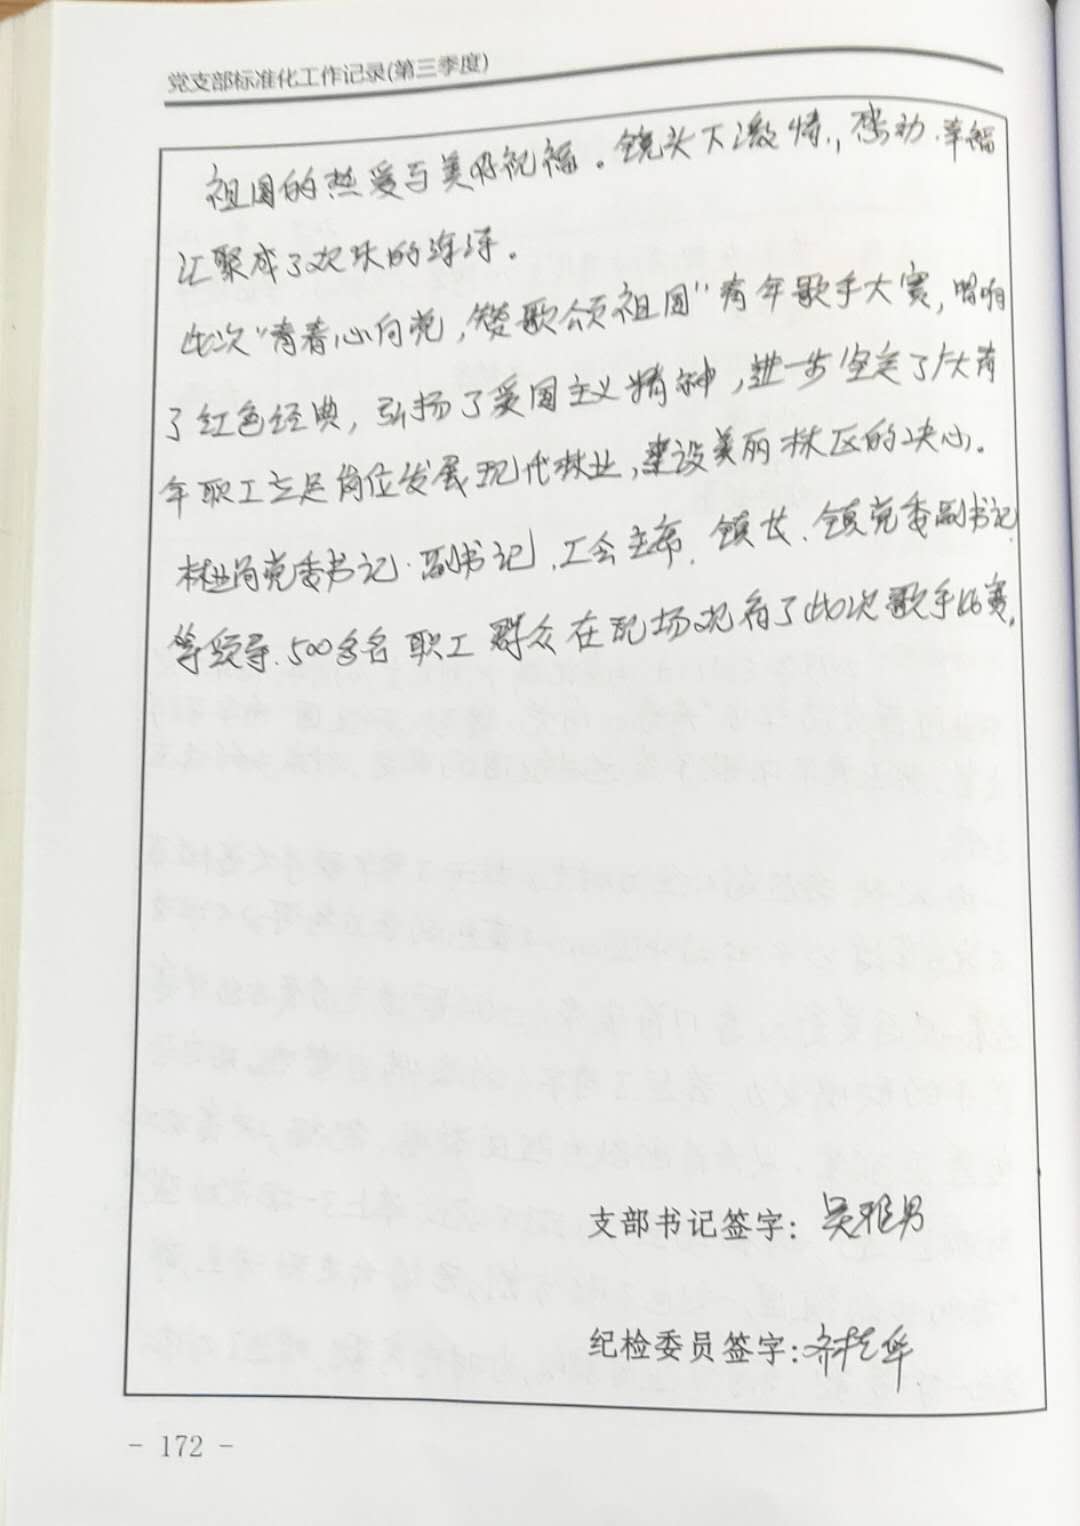 党支部标准化工作记录(第三季度)
祖国的热爱与美好祝福。镜头下激情,感动.幸福
汇聚成了欢乐的海洋。
此次“青春心向党,赞歌颂祖国”青年歌手大赛,唱响
了红色经典,弘扬了爱国主义精神,进一步坚定了广大青
年职工立足岗位发展现代林业,建设美丽林区的决心。
林业局党委书记.副书记、工会主席、镇长、镇党委副书记
等领导.500多名职工群众在现场观看了此次歌手比赛,
支部书记签字:吴雅男
纪检委员签字:齐桂华
- 172 -